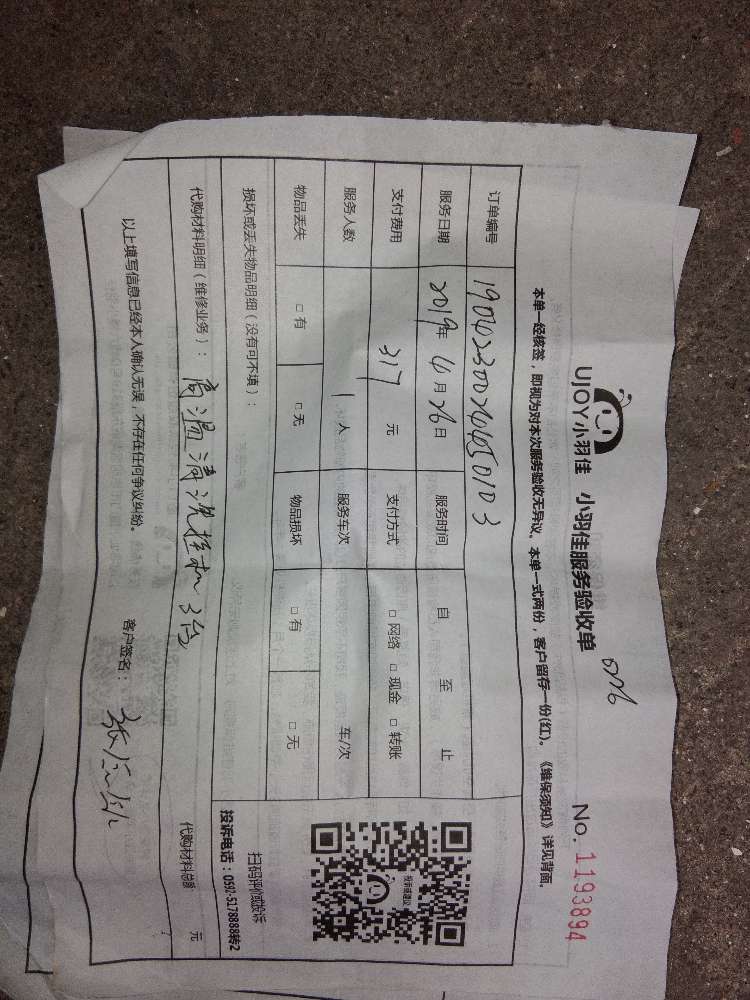 UJOY小羽佳 小羽佳服务验收单
No. 1193894
本单一经核签，即视为对本次服务验收无异议。本单一式两份，客户留存一份(红)。《维保须知》详见背面。
订单编号
服务日期 2019年 4月26日 服务时间 自 至 止
支付费用 317 元 支付方式 □网络 □现金 □转账
服务人数 1人 服务车次 车/次
物品丢失 □有 □无 物品损坏 □有 □无
损坏或丢失物品明细（没有可不填）：
扫码评价或投诉
投诉电话：0592-5178888转2
代购材料明细（维修业务）： 高温清洗挂机3台 代购材料总额 元
以上填写信息已经本人确认无误，不存在任何争议纠纷。 客户签名：